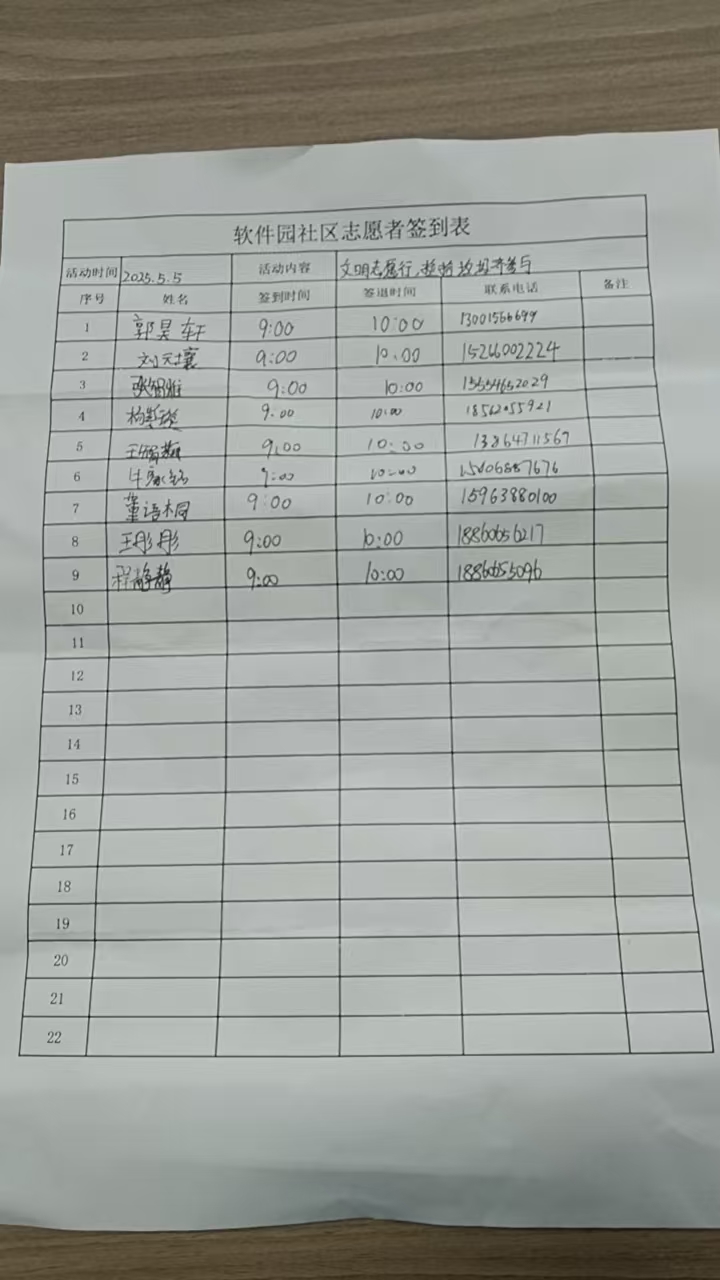 软件园社区志愿者签到表
活动时间 2025.5.5 活动内容 文明志愿行,捡拾垃圾齐参与
序号 姓名 签到时间 签退时间 联系电话 备注
1 郭昊轩 9:00 10:00
2 9:00 10:00 15266002224
3 9:00 10:00 15554652029
4 9:00 10:00 18562055921
5 9:00 10:00 13864711567
6 9:00 10:00
7 董语桐 9:00 10:00 15963880100
8 王彤彤 9:00 10:00 18860656217
9 程静静 9:00 10:00 18860655096
10
11
12
13
14
15
16
17
18
19
20
21
22